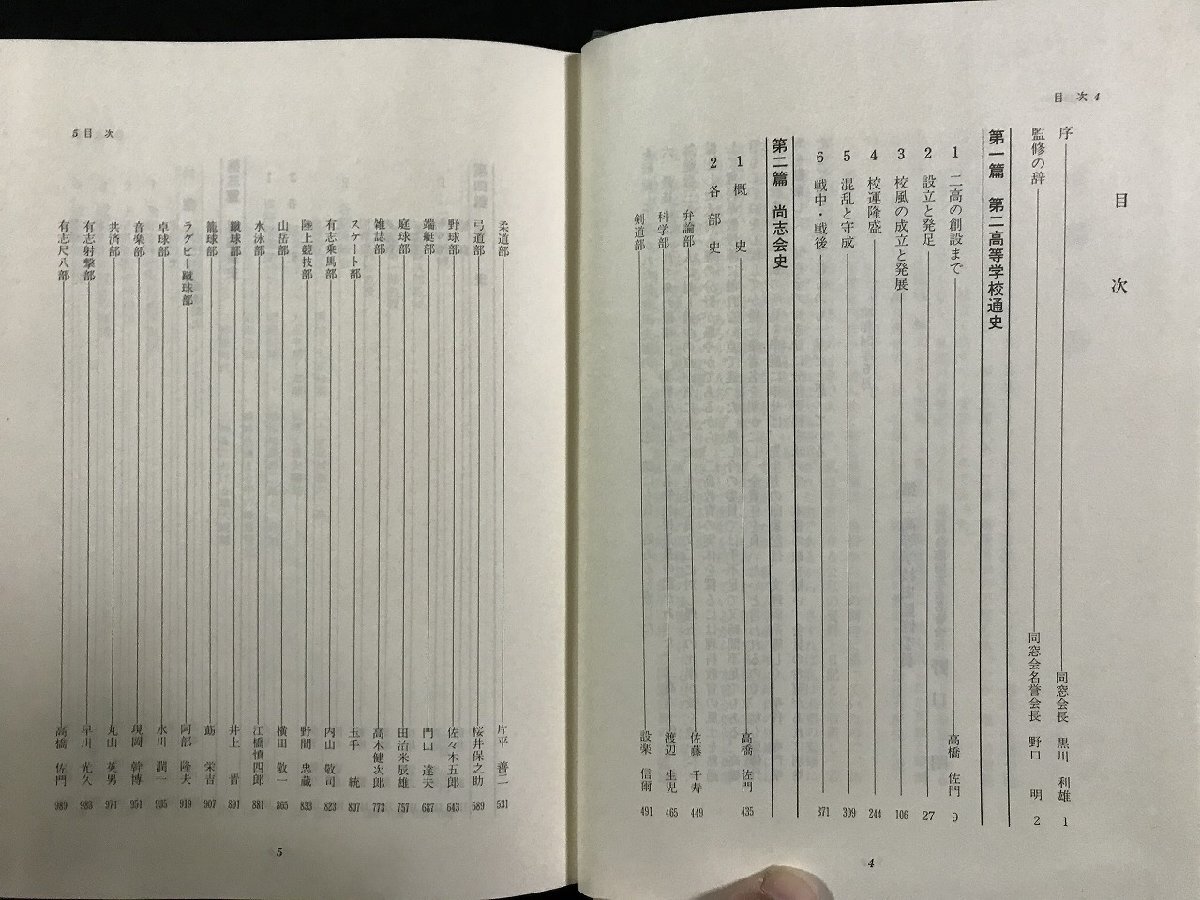 目次 4
目次
序 同窓会長 黒川 利雄 1
監修の辞 同窓会名誉会長 野口 明 2
第一篇 第二高等学校通史
1 二高の創設まで 高橋 佐門 9
2 設立と発足 27
3 校風の成立と発展 106
4 校運隆盛 244
5 混乱と守成 309
6 戦中・戦後 371
第二篇 尚志会史
1 概史 高橋 佐門 435
2 各部史
弁論部 佐藤 千寿 449
科学部 渡辺 生児 465
剣道部 設楽 信爾 491
4
5 目次
柔道部 片平 善二 531
弓道部 桜井保之助 589
野球部 佐々木五郎 643
端艇部 門口 達夫 687
庭球部 田治米辰雄 757
雑誌部 高木健次郎 773
スケート部 玉手 統 807
有志乗馬部 内山 敬司 823
陸上競技部 野間 忠蔵 833
山岳部 横田 敬一 865
水泳部 江橋慎四郎 881
蹴球部 井上 晋 891
籠球部 茄 栄吉 907
ラグビー蹴球部 阿部 隆夫 919
卓球部 水川 潤一 935
音楽部 現岡 幹博 951
共済部 丸山 英男 971
有志射撃部 早川 光久 983
有志尺八部 高橋 佐門 989
5